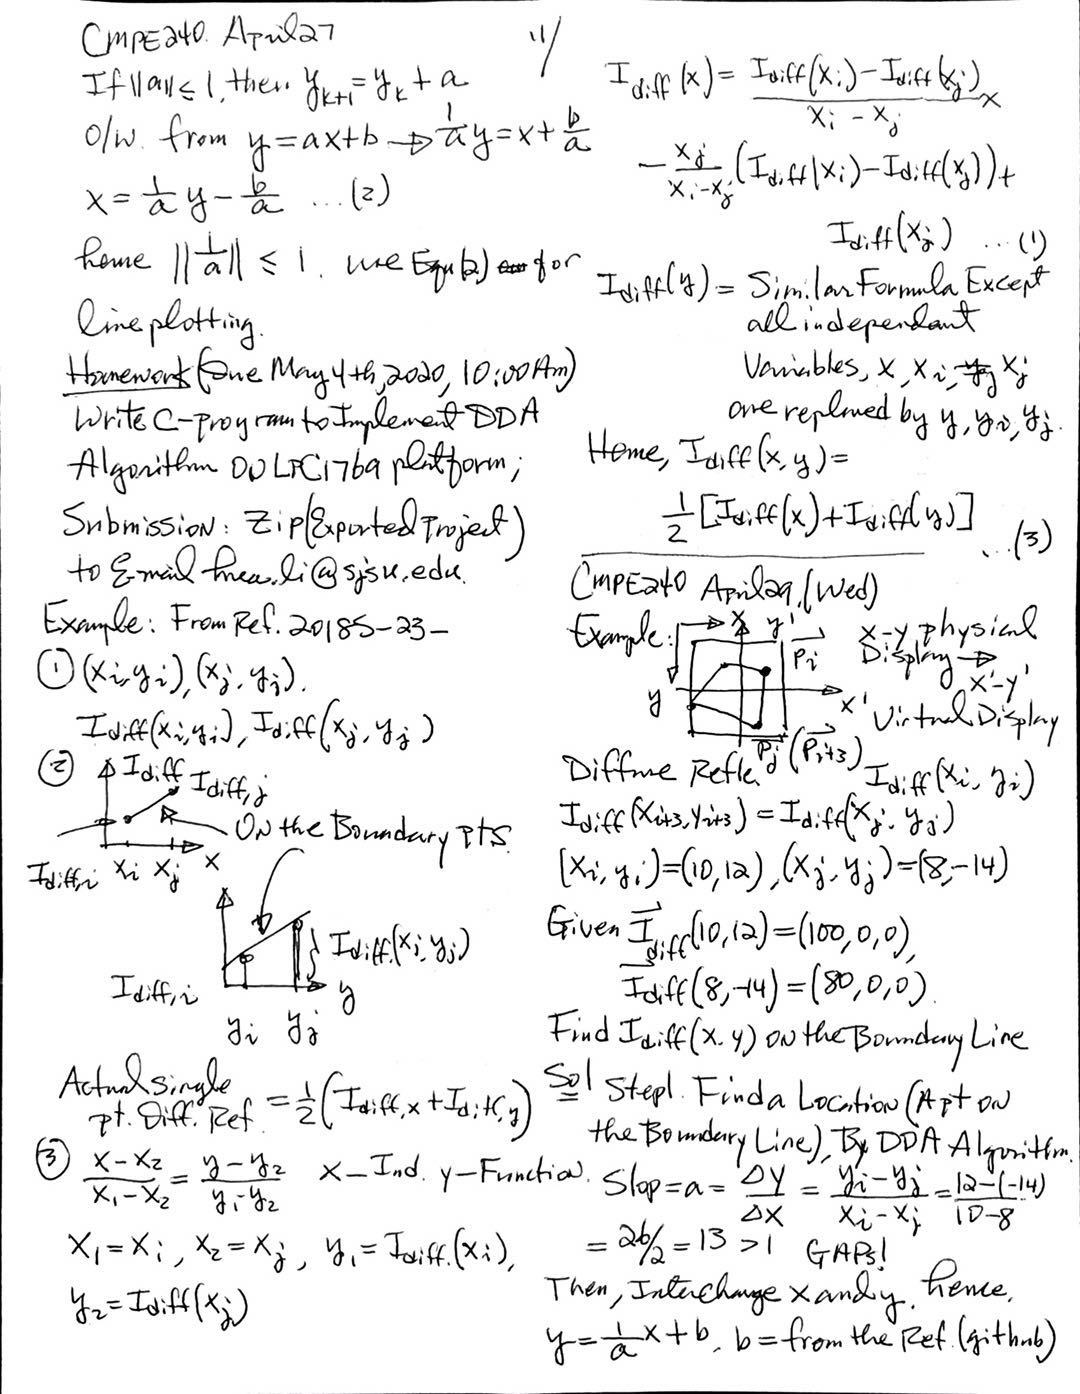 CMPE240. April27
If ||a|| ≤ 1, then y_{k+1} = y_k + a
O/W. from y = ax+b → 1/a y = x + b/a
x = 1/a y - b/a ...(2)
hence ||1/a|| ≤ 1. use Equ(2) for
line plotting.
Homework (Due May 4th, 2020, 10:00Am)
Write C-program to Implement DDA
Algorithm ON LPC1769 platform;
Submission: Zip(Exported Project)
to E-mail hua.li@sjsu.edu.
Example: From Ref. 2018S-23-
① (xi, yi), (xj, yj).
Idiff(xi, yi), Idiff(xj, yj)
② Idiff Idiff,j
ON the Boundary pts.
Idiff,i xi xj x
Idiff(xj, yj)
Idiff,i y
yi yj
Actual single
pt. Diff. Ref. = 1/2 (Idiff,x + Idiff,y)
③ (x-x2)/(x1-x2) = (y-y2)/(y1-y2) x-Ind. y-Function.
x1 = xi, x2 = xj, y1 = Idiff.(xi),
y2 = Idiff(xj)
11/
Idiff(x) = (Idiff(xi) - Idiff(xj))/(xi - xj) x
- xj/(xi-xj) (Idiff(xi) - Idiff(xj)) +
Idiff(xj) ...(1)
Idiff(y) = Similar Formula Except
all independant
Variables, x, xi, xj
are replaced by y, yi, yj.
Hence, Idiff(x,y) =
1/2 [Idiff(x) + Idiff(y)] ...(3)
CMPE240 April29,(Wed)
Example: x y' Pi x-y physical
Display →
x'-y'
y x' Virtual Display
Pj (Pi+3)
Diffuse Refle. Idiff(xi, yi)
Idiff(xi+3, yi+3) = Idiff(xj, yj)
(xi, yi)=(10,12), (xj, yj)=(8,-14)
Given Idiff(10,12)=(100,0,0),
Idiff(8,-14)=(80,0,0).
Find Idiff(x.y) ON the Boundary Line
Sol Step1. Find a Location (A pt ON
the Boundary Line), By DDA Algorithm.
Slop=a= ΔY/ΔX = (yi-yj)/(xi-xj) = (12-(-14))/(10-8)
= 26/2 = 13 >1 GAPs!
Then, Interchange x and y, hence,
y = 1/a x + b, b = from the Ref. (github)